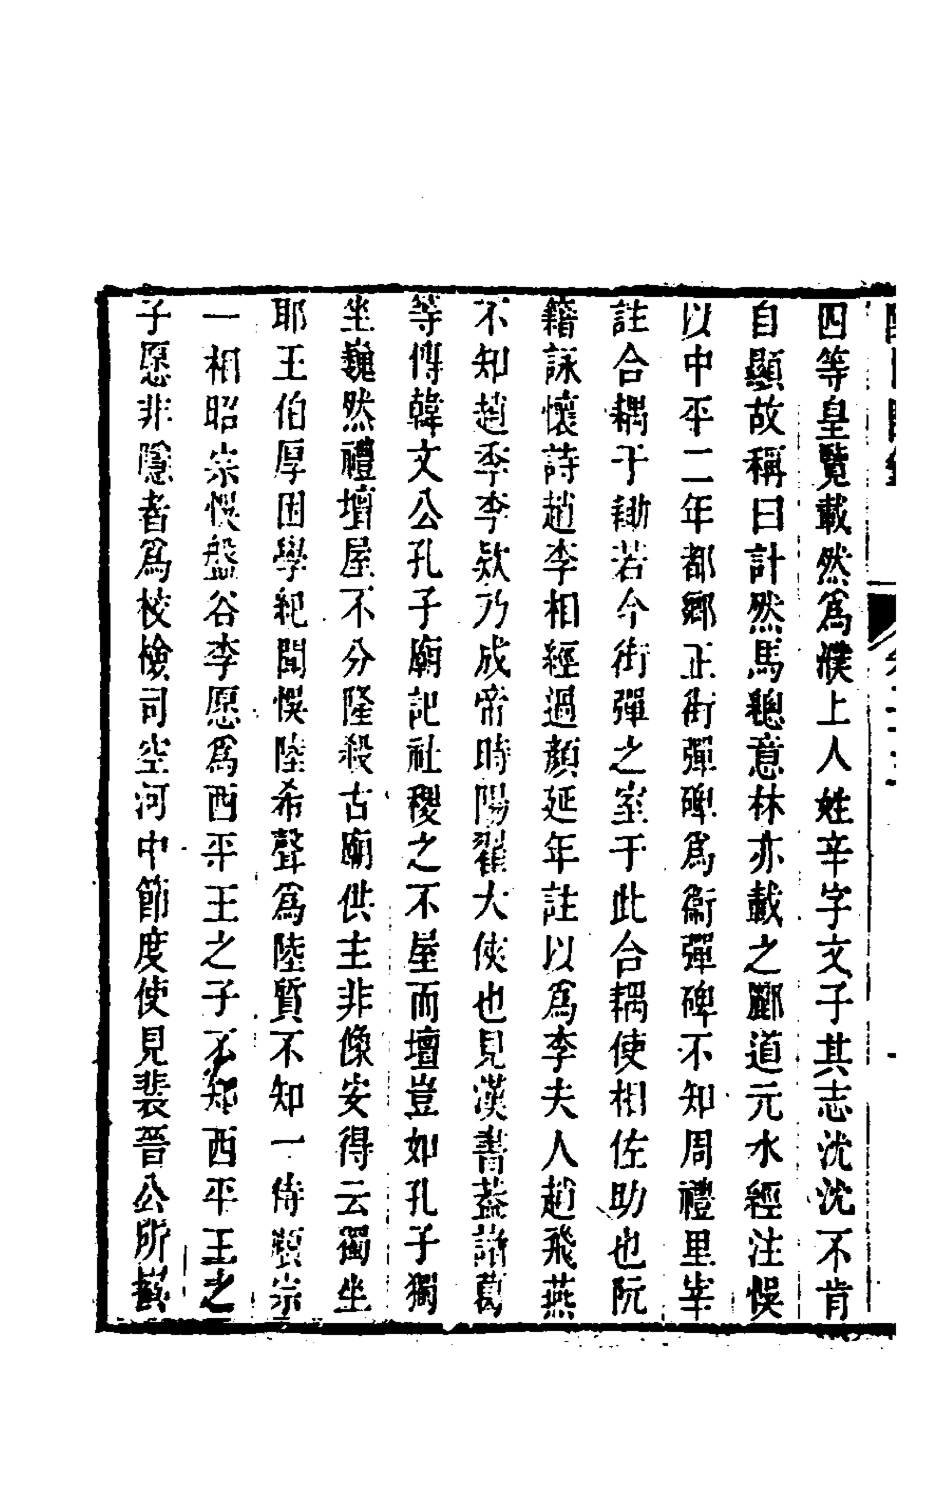 四等皇覽載然爲濮上人姓辛字文子其志沈沈不肯
自顯故稱曰計然馬總意林亦載之酈道元水經注悞
以中平二年都鄉正街彈碑爲衞彈碑不知周禮里宰
註合耦于耡若今街彈之室于此合耦使相佐助也阮
籍詠懷詩趙李相經過顏延年註以爲李夫人趙飛燕
不知趙季李欵乃成帝時陽翟大俠也見漢書葢諸葛
等傳韓文公孔子廟記社稷之不屋而壇豈如孔子獨
坐巍然禮壇屋不分隆殺古廟供主非像安得云獨坐
耶王伯厚困學紀聞悞陸希聲爲陸質不知一侍順宗
一相昭宗悞盤谷李愿爲西平王之子不知西平王之
子愿非隱者爲校檢司空河中節度使見裴晉公所譔